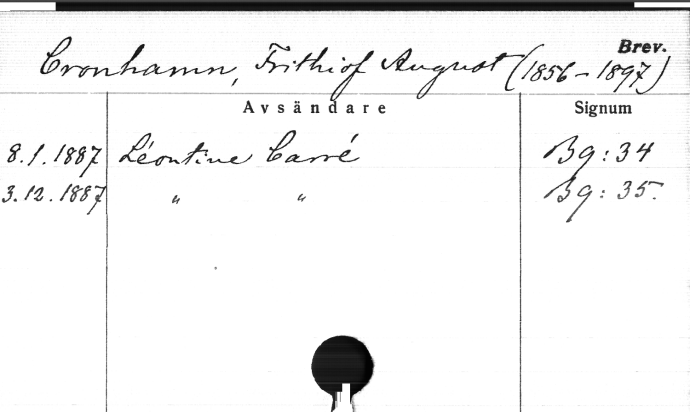 Brev.
Cronhamn, Frithiof August (1856-1897)
Avsändare Signum
8.1.1887 Léontine Carré Bg:34
3.12.1887 " " Bg:35.